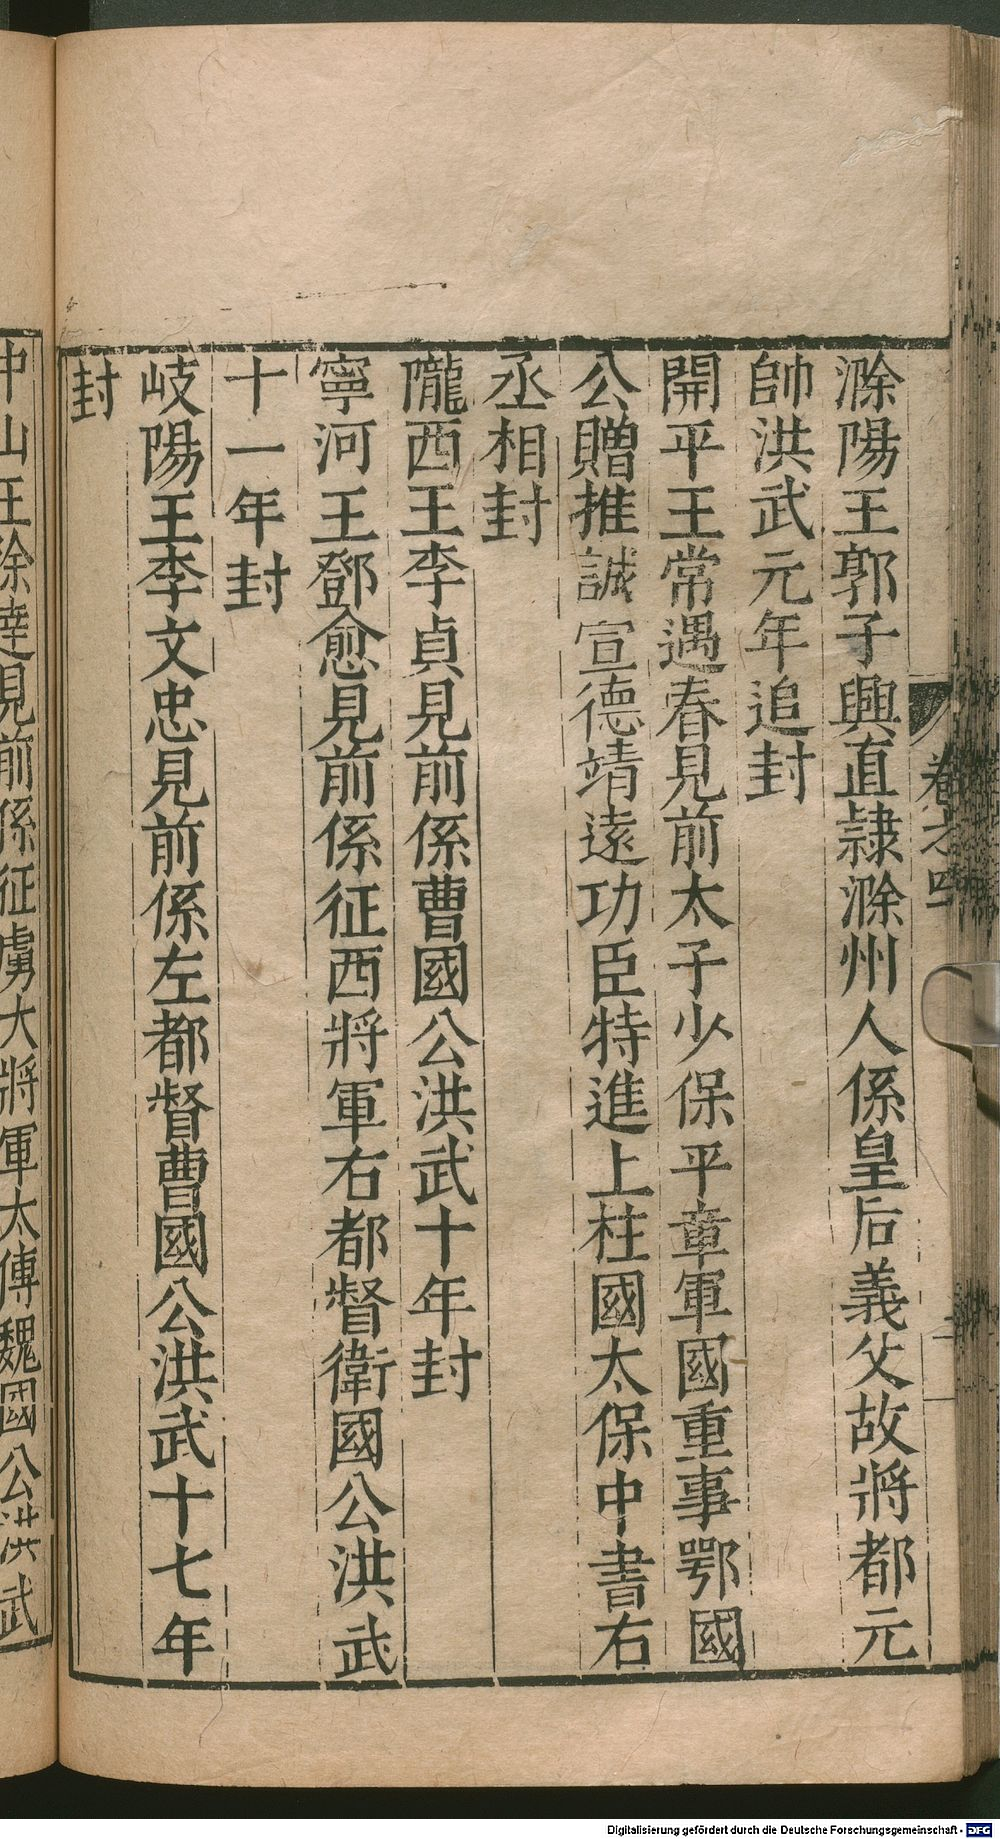 卷之四
二
滁陽王郭子興直隷滁州人係皇后義父故將都元
帥洪武元年追封
開平王常遇春見前太子少保平章軍國重事鄂國
公贈推誠宣德靖遠功臣特進上柱國太保中書右
丞相封
隴西王李貞見前係曹國公洪武十年封
寧河王鄧愈見前係征西將軍右都督衛國公洪武
十一年封
岐陽王李文忠見前係左都督曹國公洪武十七年
封
中山王徐達見前係征虜大將軍太傅魏國公洪武
Digitalisierung gefördert durch die Deutsche Forschungsgemeinschaft - DFG